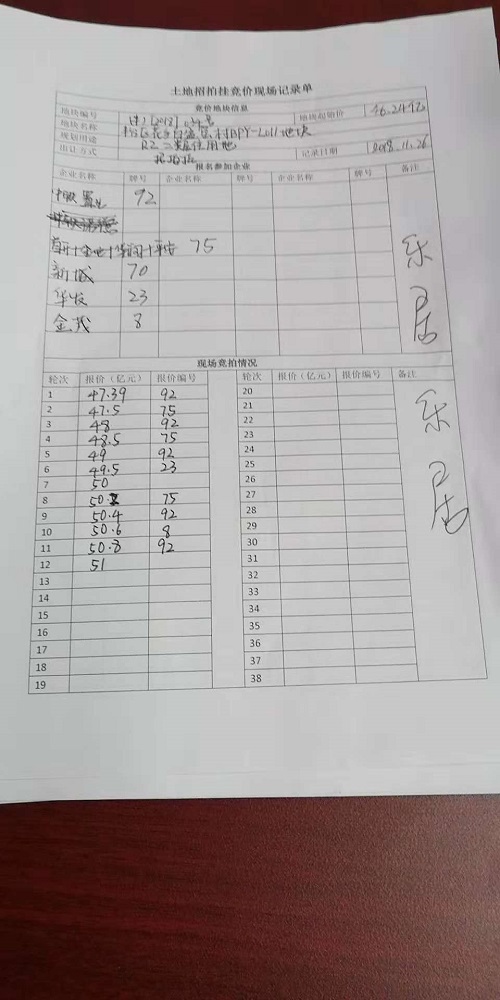 土地招拍挂竞价现场记录单
竞价地块信息
地块编号 [2018] 号 地块起始价 46.24亿
地块名称 BPY-L011地块
规划用途 R2二类居住用地
出让方式 记录日期 2018.11.26
报名参加企业
企业名称 牌号 企业名称 牌号 企业名称 牌号 备注
中铁置业 92
首开+金地+华润+平安 75
新城 70
华发 23
金茂 8
乐居
现场竞拍情况
轮次 报价（亿元） 报价编号 轮次 报价（亿元） 报价编号 备注
1 47.39 92 20
2 47.5 75 21
3 48 92 22
4 48.5 75 23
5 49 92 24
6 49.5 23 25
7 50 26
8 50.2 75 27
9 50.4 92 28
10 50.6 8 29
11 50.8 92 30
12 51 31
13 32
14 33
15 34
16 35
17 36
18 37
19 38
乐居